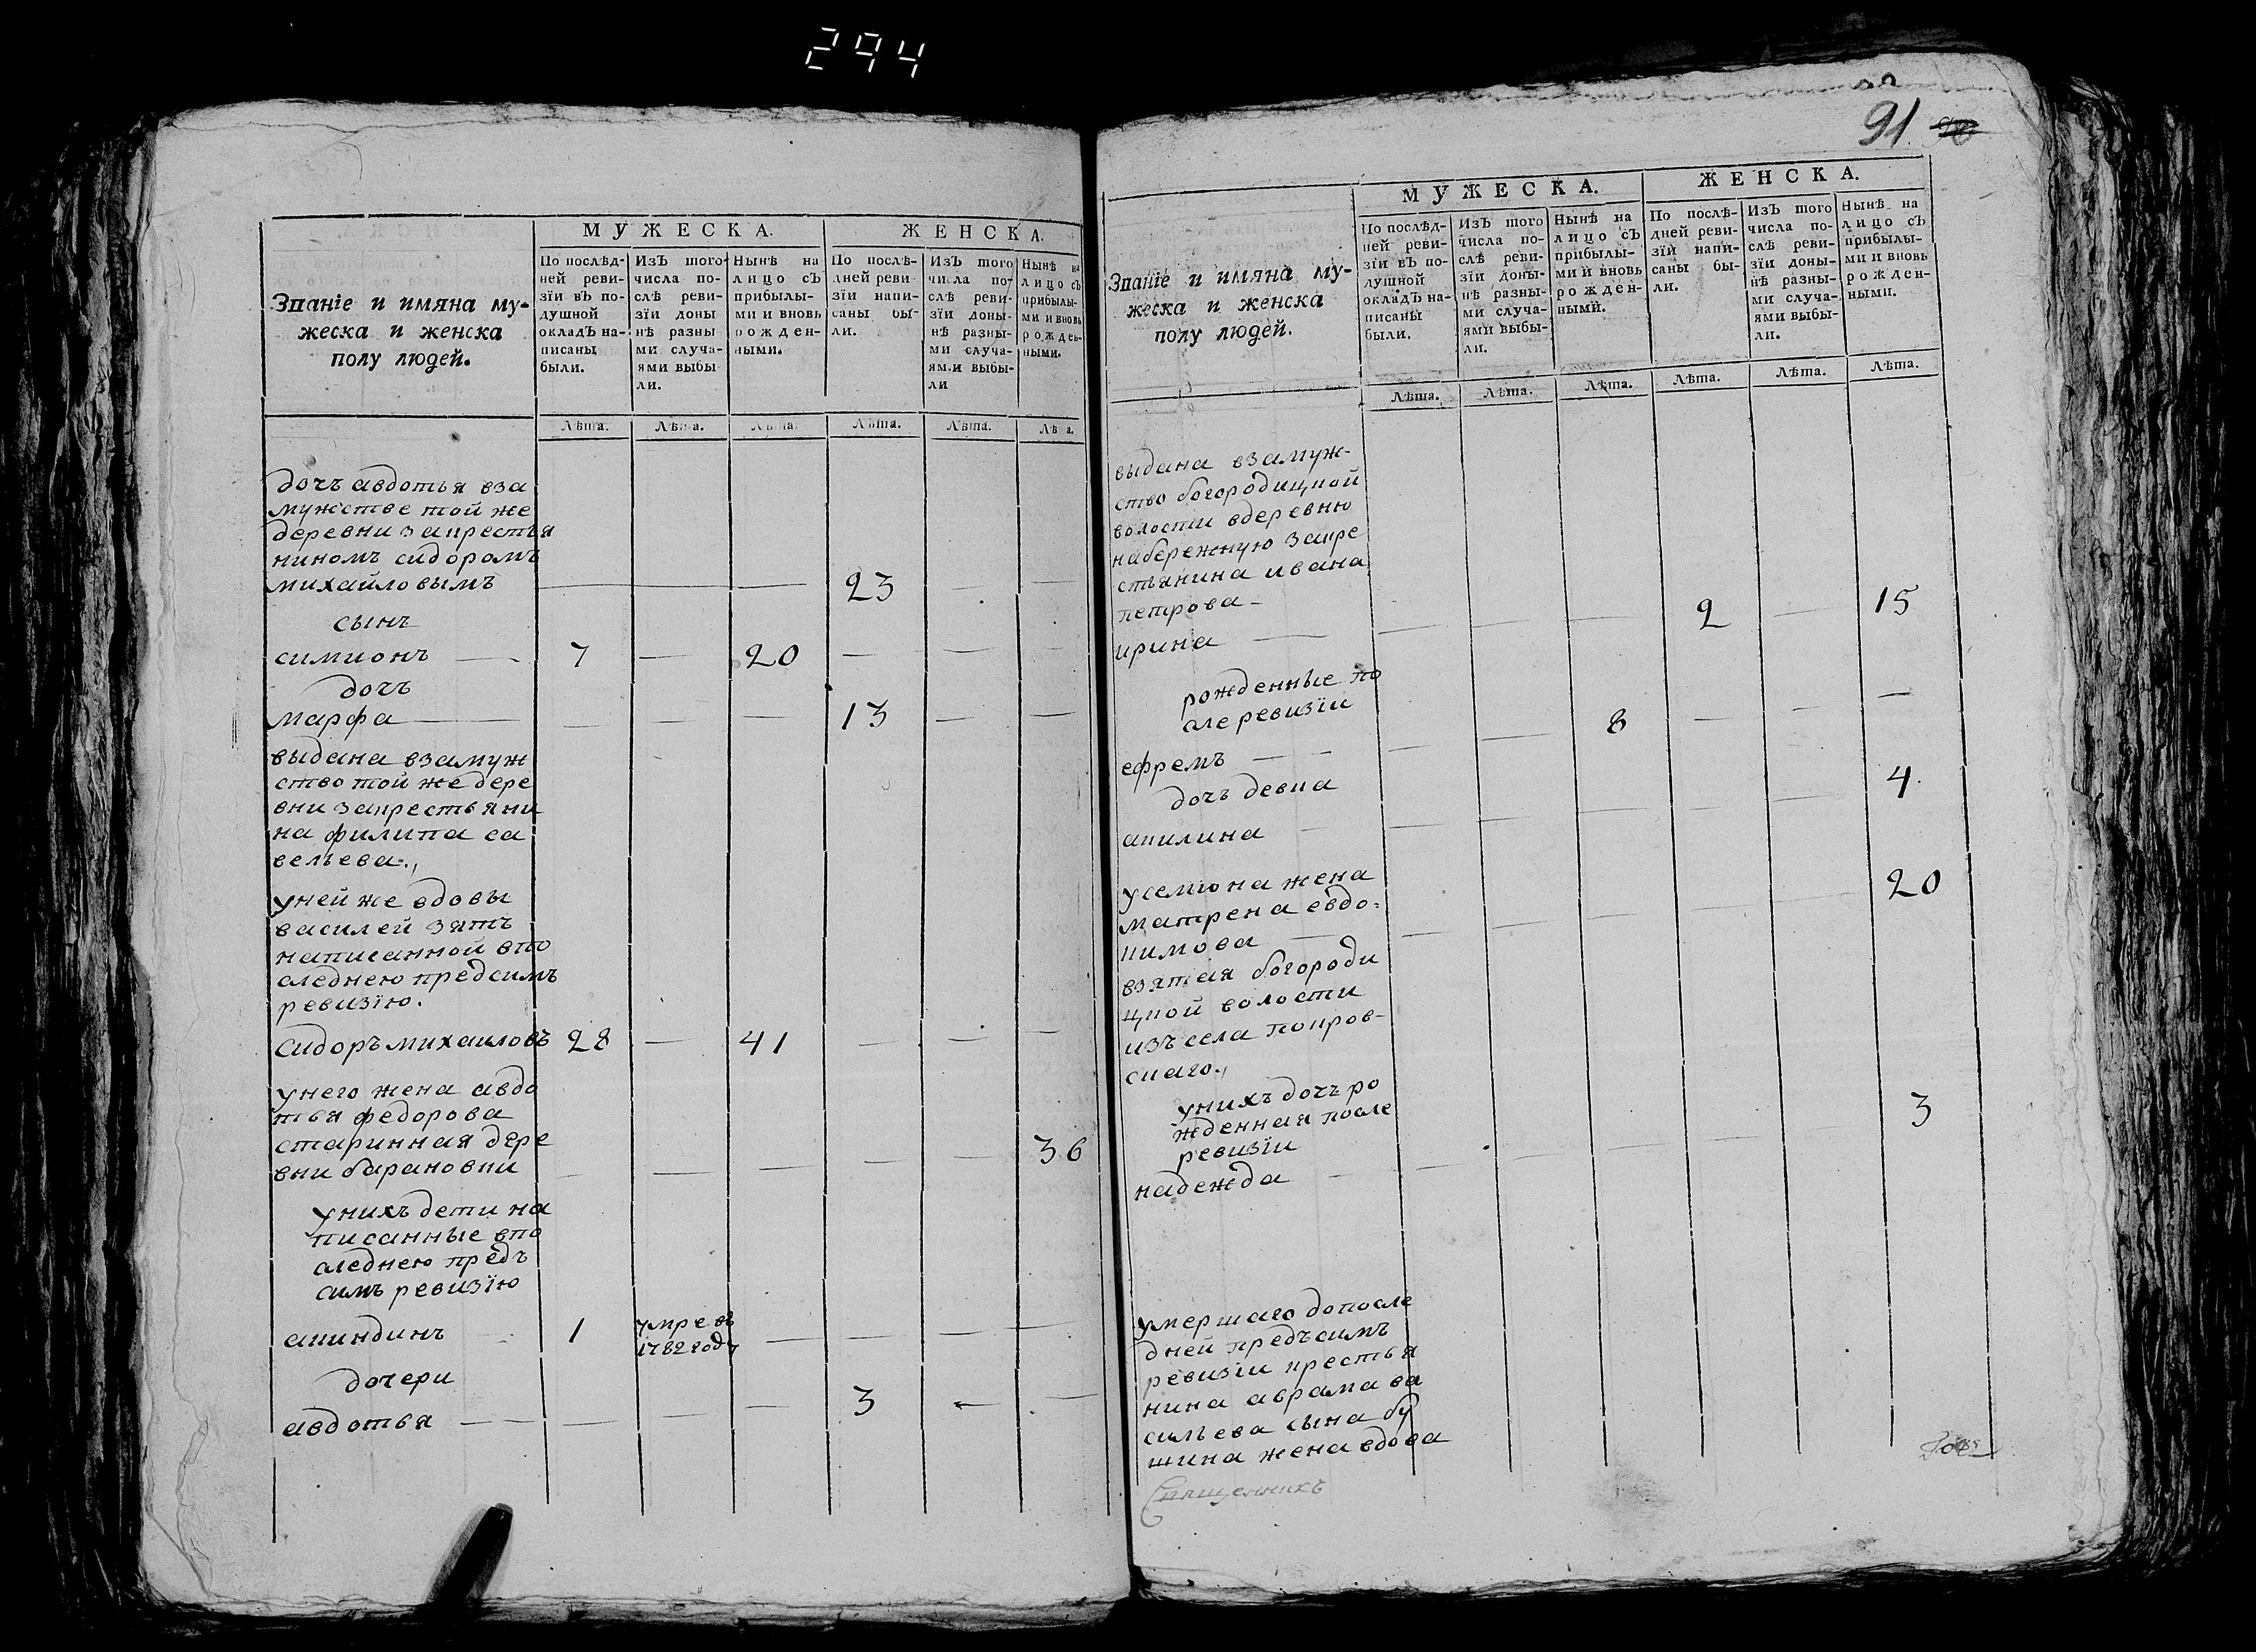 294
МУЖЕСКА.
ЖЕНСКА.
Званіе и имяна му-
жеска и женска
полу людей.
По послѣд-
ней реви-
зїи въ по-
душной
окладъ на-
писаны
были.
Изъ того
числа по-
слѣ реви-
зїи доны
нѣ разны
ми случа-
ями выбы
ли.
Нынѣ на
лицо съ
прибылы-
ми и вновь
рожден-
ными.
По послѣ-
дней реви
зїи напи-
саны бы-
ли.
Изъ того
числа по-
слѣ реви-
зїи доны-
нѣ разны-
ми случа-
ями выбы-
ли
Нынѣ на
лицо съ
прибылы-
ми и вновь
рожден-
ными.
Лѣта. Лѣта. Лѣта. Лѣта. Лѣта. Лѣта.
дочь авдотья вза
мужстве той же
деревни закрестья
нином сидоромъ
михайловымъ — — — 23 — —
сынъ
симионъ — 7 — 20 — — —
дочь
марфа — — — — 13 — —
выдана взамуж
ство той же дере
вни закрестьяни
на филипа са
вельева.,
уней же вдовы
василей зять
написанной впо
следнею предсимъ
ревизїю.
сидоръ михаиловъ 28 — 41 — — —
унего жена авдо
тья федорова
старинная дере
вни барановки — — — — — 36
унихъ дети на
писанные впо
следнею предъ
симъ ревизїю
акиндинъ 1 умре въ
1782 году — — — —
дочери
авдотья — — — — 3 — —
91.
МУЖЕСКА.
ЖЕНСКА.
Званіе и имяна му-
жеска и женска
полу людей.
По послѣд-
ней реви-
зїи въ по-
душной
окладъ на-
писаны
были.
Изъ того
числа по-
слѣ реви-
зїи доны-
нѣ разны-
ми случа-
ями выбы-
ли.
Нынѣ на
лицо съ
прибылы-
ми и вновь
рожден-
ными.
По послѣ-
дней реви-
зїи напи-
саны бы-
ли.
Изъ того
числа по-
слѣ реви-
зїи доны-
нѣ разны-
ми случа-
ями выбы-
ли.
Нынѣ на
лицо съ
прибылы-
ми и вновь
рожден-
ными.
Лѣта. Лѣта. Лѣта. Лѣта. Лѣта. Лѣта.
выдана взамуж-
ство богородицкой
волости вдеревню
набережную закре
стьянина ивана
петрова —
ирина — — — — 2 — 15
рожденные по
сле ревизїи
ефремъ — — — 8 — — —
дочь девка
акилина — — — — — — 4
усемиона жена
матрена евдо=
кимова — — — — — — 20
взятая богороди
цкой волости
изъ села покров-
скаго.,
унихъ дочь ро
жденная после
ревизїи
надежда — — — — — — 3
умершаго допосле
дней предъсимъ
ревизїи крестья
нина аврама ва
сильева сына бу
шина жена вдова
Священникъ